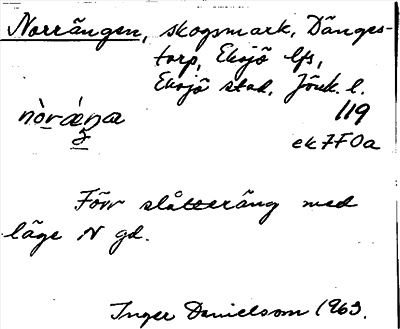 Norrängen, skogsmark, Dänges-
torp, Eksjö lfs,
Eksjö stad, Jönk. l.
119
ek7F0a
Förr slåtteräng med
läge N gd.
Inger Danielsson 1963.